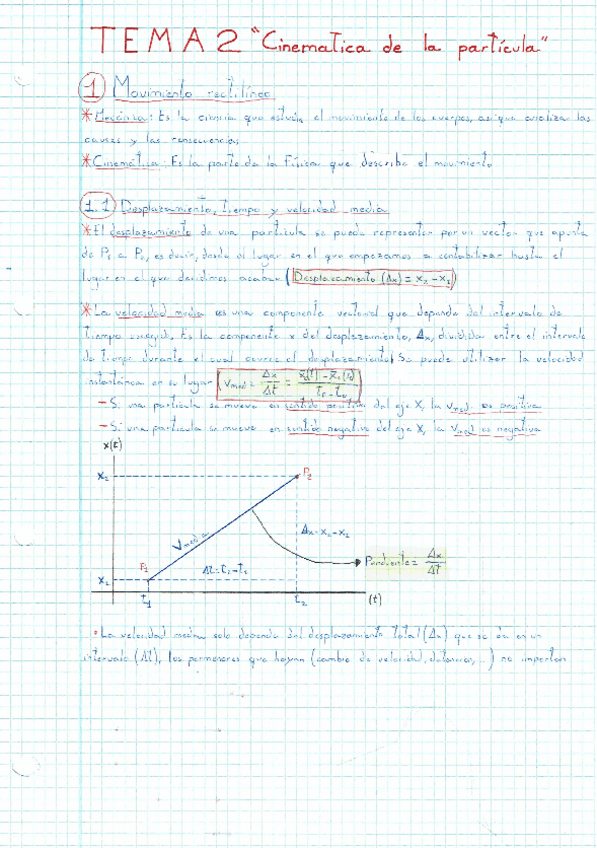 TEMA 2 "Cinematica de la partícula"
1 Movimiento rectilíneo
* Mecánica: Es la ciencia que estudia el movimiento de los cuerpos, así que analiza las
causas y las consecuencias
* Cinemática: Es la parte de la Física que describe el movimiento
1.1 Desplazamiento, tiempo y velocidad media
* El desplazamiento de una partícula se puede representar por un vector que apunta
de P₁ a P₂, es decir, desde el lugar en el que empezamos a contabilizar hasta el
lugar en el que decidimos acabar (Desplazamiento (Δx) = x₂ - x₁)
* La velocidad media es una componente vectorial que depende del intervalo de
tiempo escogido. Es la componente x del desplazamiento, Δx, dividida entre el intervalo
de tiempo durante el cual ocurre el desplazamiento. Se puede utilizar la velocidad
instantánea en su lugar (Vmed = Δx/Δt =
- Si una partícula se mueve en sentido positivo del eje X, la Vmed es positiva
- Si una partícula se mueve en sentido negativo del eje X, la Vmed es negativa
x(t)
x₂
P₂
Δx = x₂ - x₁
Vmed
Pendiente = Δx/Δt
P₁
Δt = t₂ - t₁
x₁
t₁
t₂
(t)
• La velocidad media solo depende del desplazamiento total (Δx) que se da en un
intervalo (Δt), los pormenores que hayan (cambio de velocidad, distancias, ...) no importan